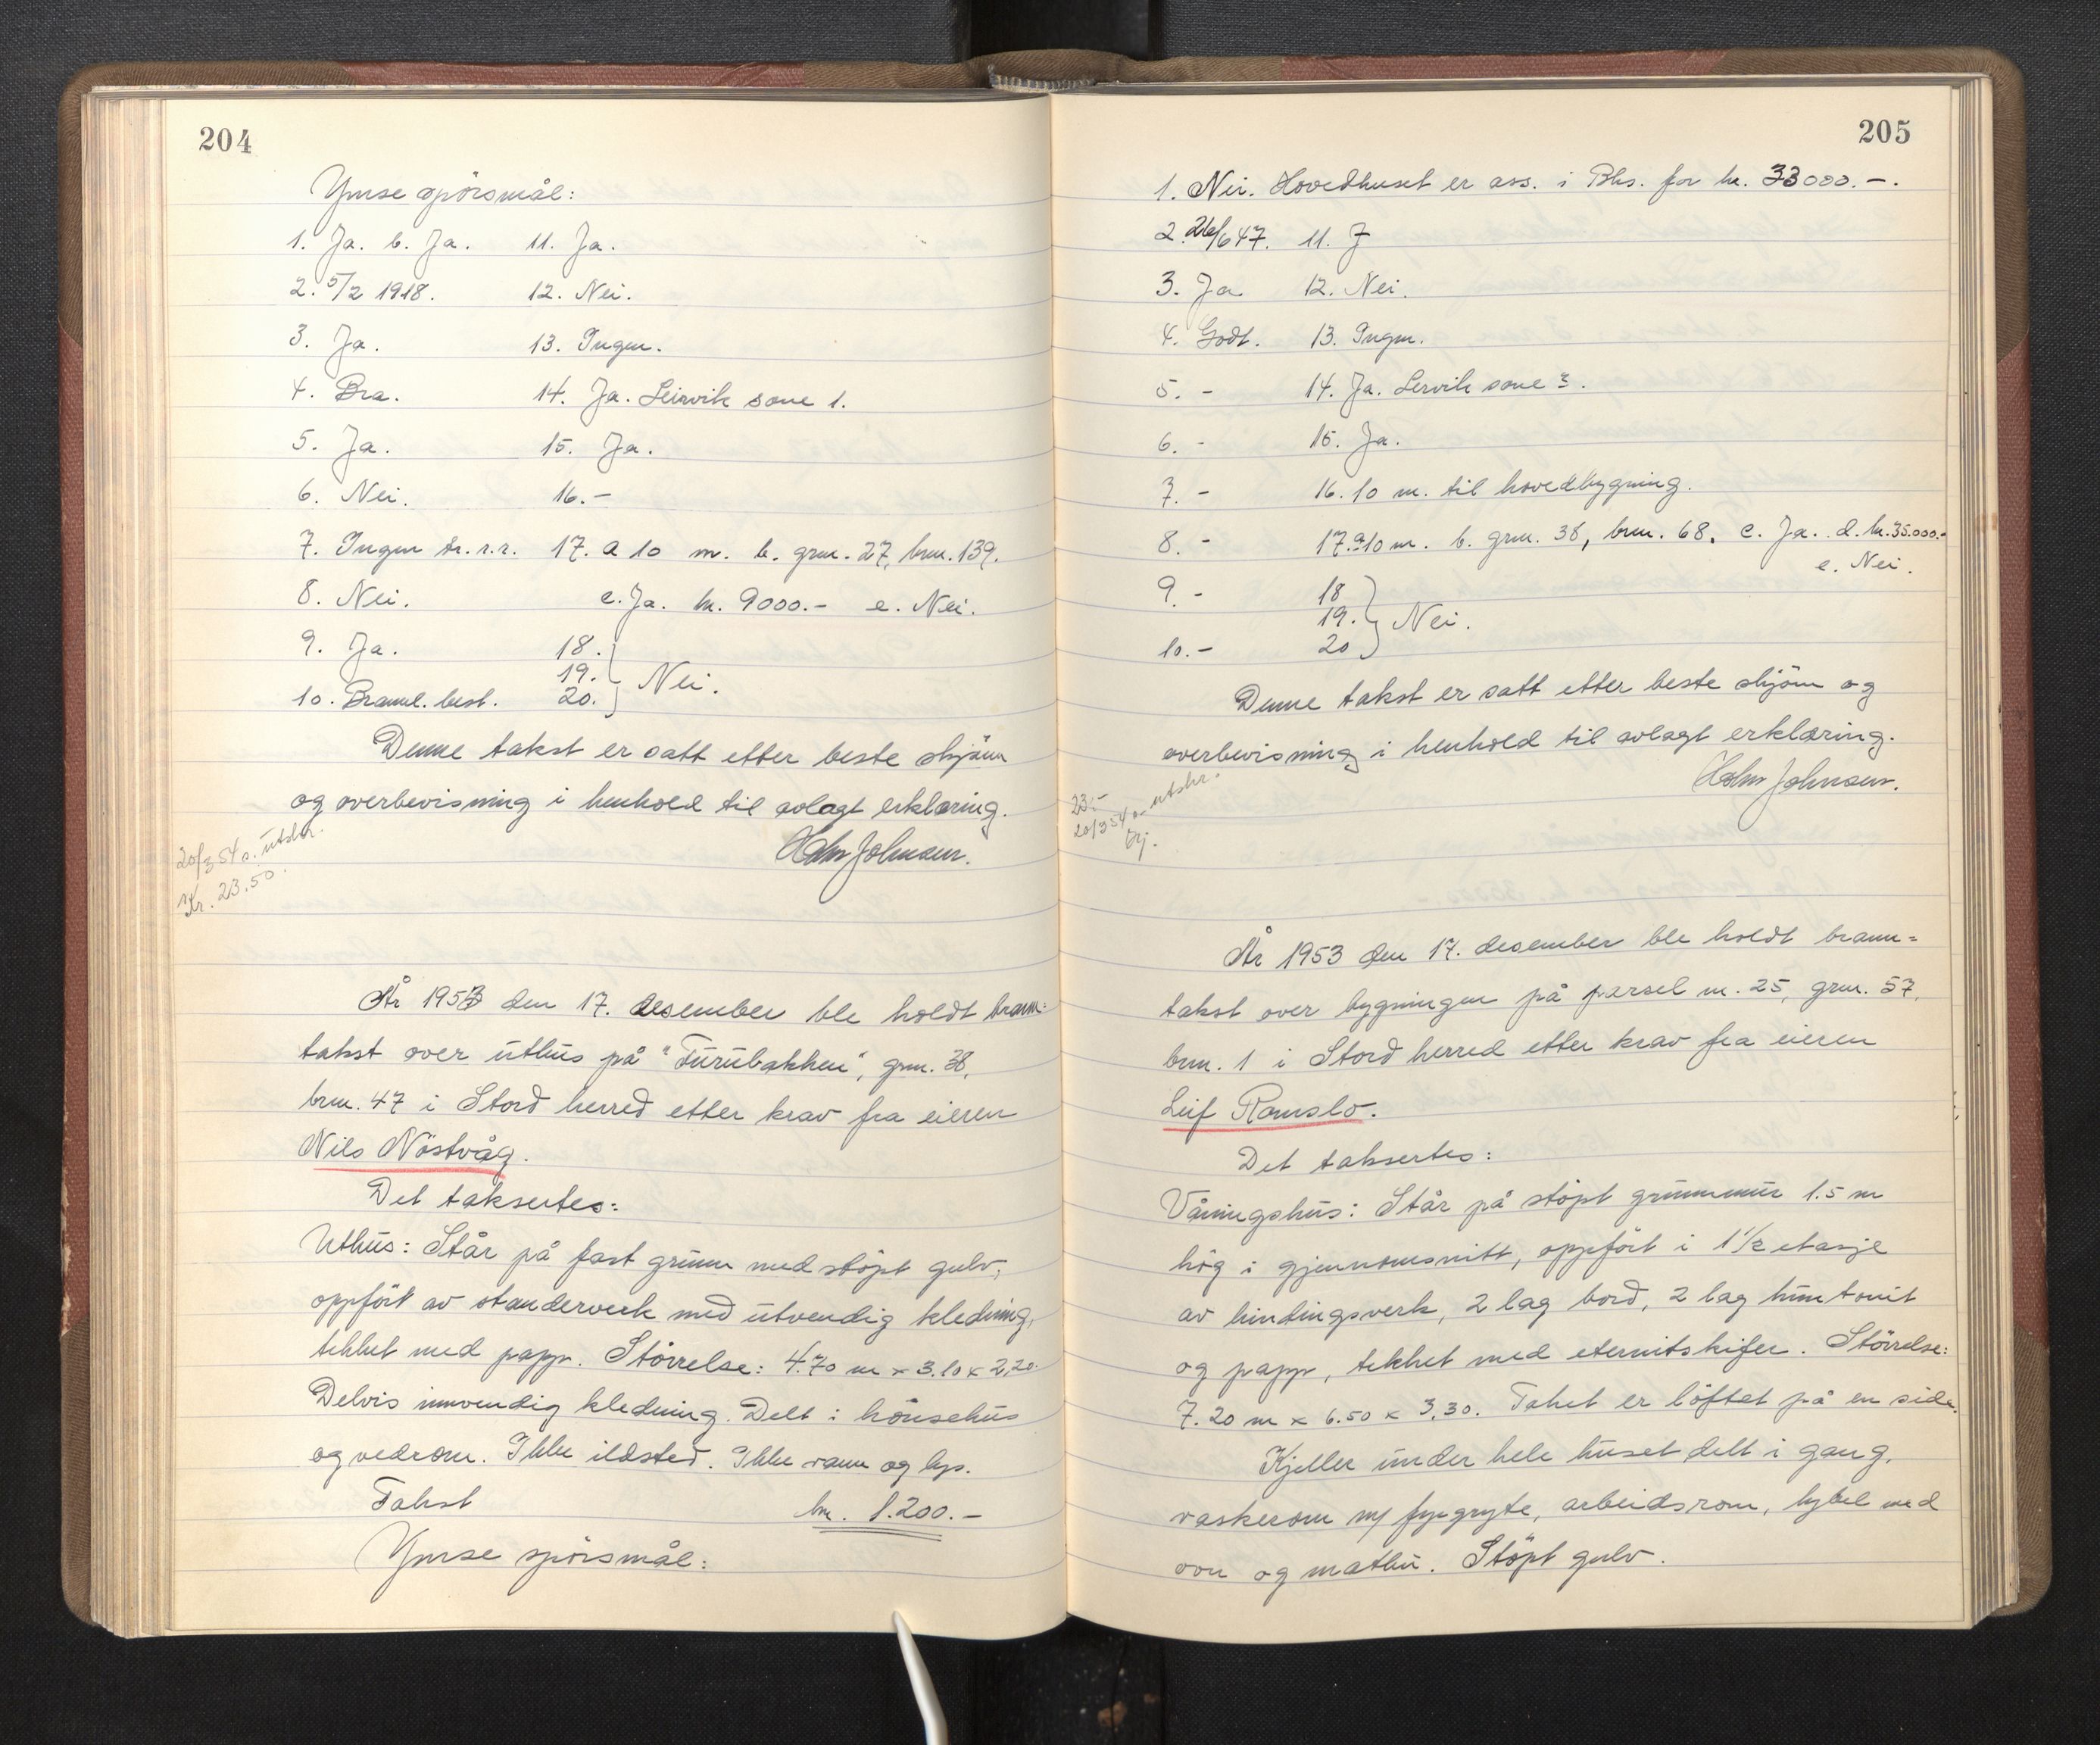 204
Ymse spörsmål:
1. Ja. b. Ja. 11. Ja.
2. 5/2 1918. 12. Nei.
3. Ja. 13. Ingen.
4. Bra. 14. Ja. Leirvik sone 1.
5. Ja. 15. Ja.
6. Nei. 16. -
7. Ingen br.r.r. 17. a 10 m. b. grm. 27, brm. 139.
8. Nei. c. Ja. kr. 9000.- e. Nei.
9. Ja. 18.
19. Nei.
10. Brannl. best. 20.
Denne takst er satt etter beste skjönn
og overbevisning i henhold til avlagt erklæring.
20/3 54 s. utskr.
Kr. 23.50.
År 1953 den 17. desember ble holdt brann=
takst over uthus på "Furubakken", grm. 38,
brm. 47 i Stord herred etter krav fra eieren
Nils Nöstvåg.
Det taksertes:
Uthus: Står på fast grunn med stöpt gulv,
oppfört av standerverk med utvendig kledning,
tekket med papp. Störrelse: 4.70 m x 3.10 x 2,20.
Delvis innvendig kledning. Delt i hönsehus
og vedrom. Ikke ildsted. Ikke vann og lys.
Takst kr. 1.200.-
Ymse spörsmål:
205
1. Nei. Hovedhuset er ass. i Bks. for kr. 33000.-.
2. 26/6 47. 11. J
3. Ja 12. Nei.
4. Godt. 13. Ingen.
5. - 14. Ja. Lervik sone 3.
6. - 15. Ja.
7. - 16. 10 m. til hovedbygning.
8. - 17. a 10 m. b. grm. 38, brm. 68. c. Ja. d. kr. 35.000.-
e. Nei.
9. - 18
19. Nei.
10. - 20
Denne takst er satt etter beste skjönn og
overbevisning i henhold til avlagt erklæring.
23.-
20/3 54 s. utskr.
År 1953 den 17. desember ble holdt brann=
takst over bygningen på parsel nr. 25, grm. 57,
brm. 1 i Stord herred etter krav fra eieren
Leif Ramslo.
Det taksertes:
Våningshus: Står på stöpt grunnmur 1.5 m
hög i gjennomsnitt, oppfört i 1 1/2 etasje
av bindingsverk, 2 lag bord, 2 lag huntonit
og papp, tekket med eternitskifer. Störrelse:
7.20 m x 6.50 x 3.30. Taket er löftet på en side.
Kjeller under hele huset delt i gang,
vaskerom m/ fyrgryte, arbeidsrom, hybel med
ovn og matbu. Stöpt gulv.